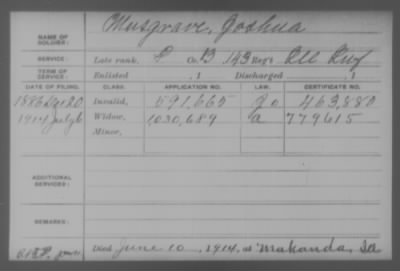 NAME OF SOLDIER: Musgrave, Joshua
SERVICE: Late rank, P Co. B 143 Reg't Ill Inf
TERM OF SERVICE: Enlisted , 1 Discharged , 1
DATE OF FILING. CLASS. APPLICATION NO. LAW. CERTIFICATE NO.
1886 Dec 20 Invalid, 591,665 463,880
1914 July 6 Widow, 1030,689 a 779615
Minor,
ADDITIONAL SERVICES:
REMARKS:
Died June 10, 1914, at Makanda, Ill